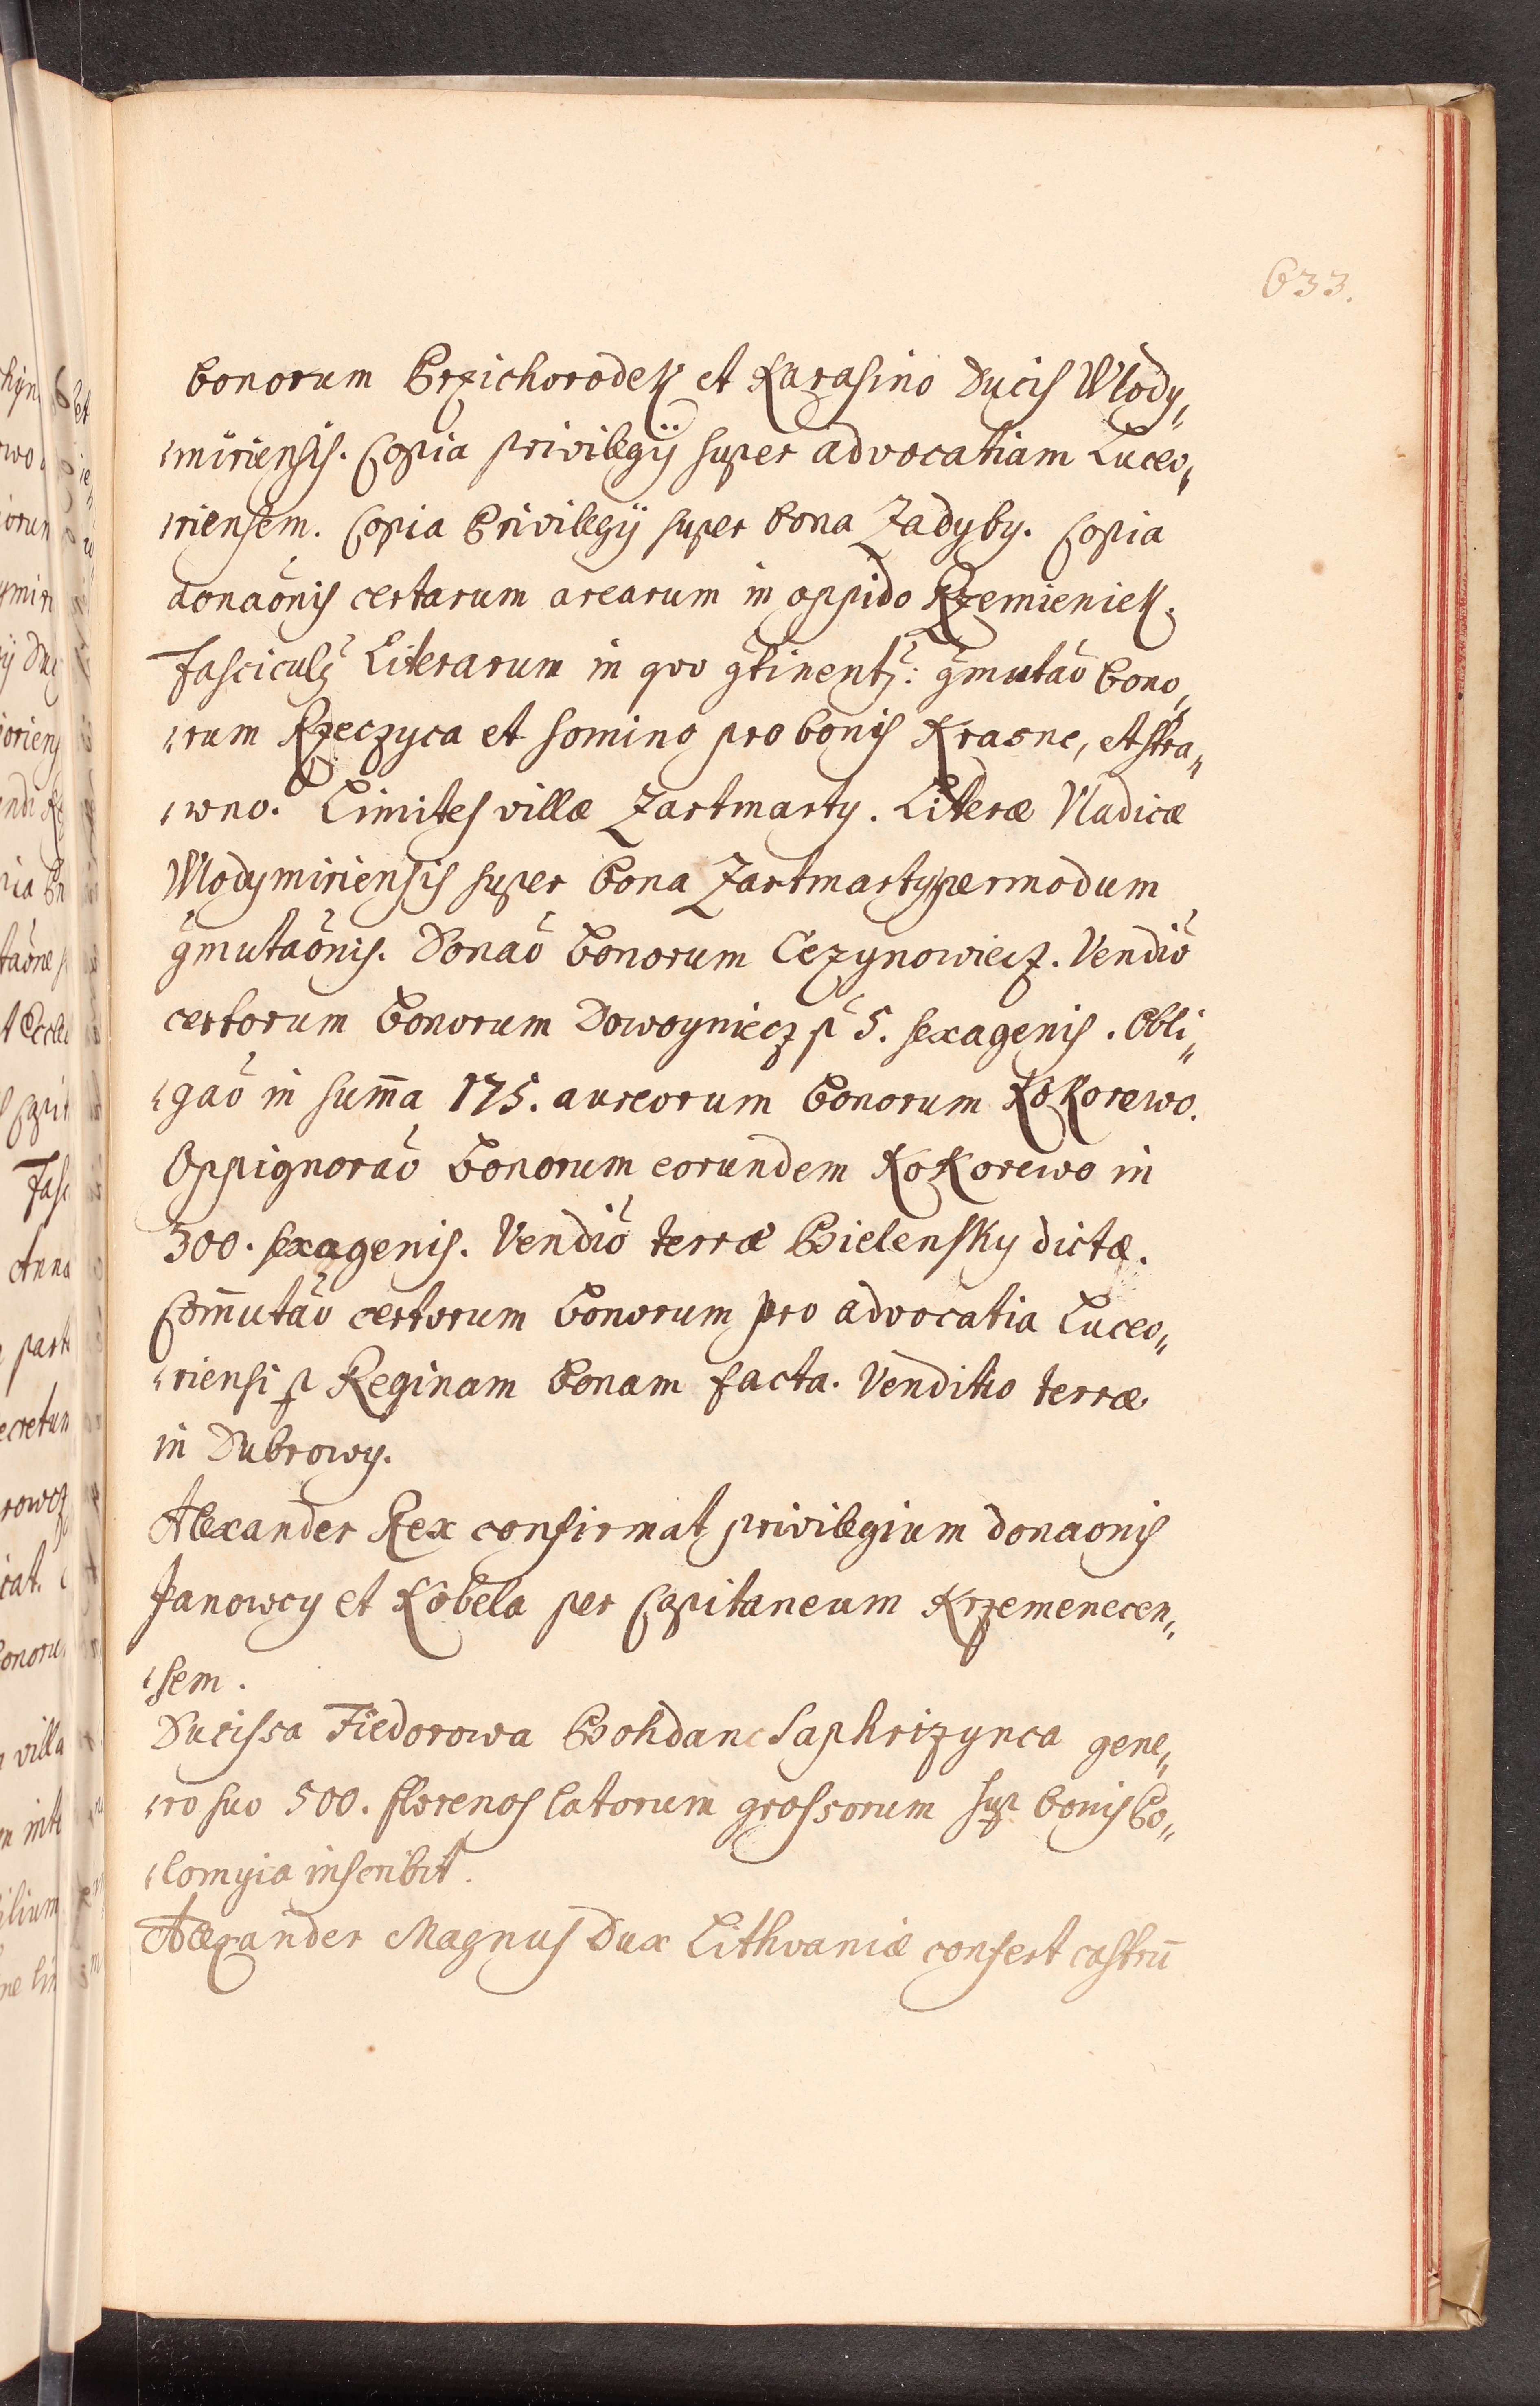 633.
bonorum Przichorodek et Karasino Ducis Wlody„
„miriensis. Copia privilegij super advocatiam Luceo„
„riensem. Copia Privilegij super bona Zadyby. Copia
donaõnis certarum arearum in oppido Krzemieniek.
Fasciculꝯ Literarum in quo ꝯtinentꝛ: ꝯmutaõ bono„
„rum Rzeczyca et Somino pro bonis Krasne, et Stra„
„wno. Limites villæ Zartmarty. Literæ Vladicæ
Wlodymiriensis super bona Zartmarty per modum
ꝯmutaõnis. Donaõ bonorum Cezynowiecz. Vendiõ
certorum bonorum Dowoyniecz ꝓ 5. sexagenis. Obli„
„gaõ in sum̃a 175. aureorum bonorum Kokorewo.
Oppignoraõ bonorum eorundem Kokorewo in
300. sexagenis. Vendiõ terræ Bielensky dictæ.
Com̃utaõ certorum bonorum pro advocatia Luceo„
„riensi ꝑ Reginam Bonam facta. Venditio terræ
in Dubrowy.
Alexander Rex confirmat privilegium donaonis
Janowcy et Kobela per Capitaneum Krzemenecen„
„sem.
Ducissa Fiedorowa Bohdane Saphrizynca gene„
„ro suo 500. florenos latorum grossorum suꝑ bonis Co„
„lomyia inscribit.
Alexander Magnus Dux Lithvaniæ confert castrũ